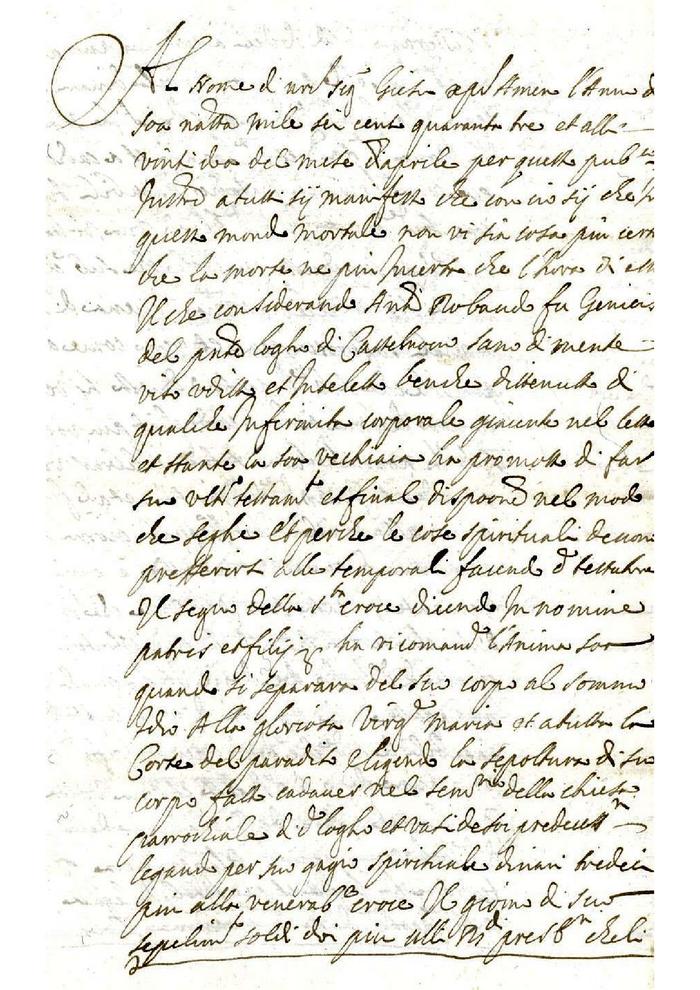 Al Nome d nrō Sigr Giesu xpo Amen l'Anno d
soa natta mile sei cento quaranta tre et alli
vinti doa del mese d'aprile per questo pubco
Instro a tutti sij manifesto che con cio sij che in
questo mondo mortale non vi sia cosa piu certa
che la morte ne piu Incerta che l'hora di essa
Il che considerando Anto Robaudo fu
del pnte logho di Castelnovo sano di mente
viso udito et Inteletto benche dettenuto di
qualche Infirmita corporale giacente nel letto
et stante la soa vechiaia ha promosso di far
suo ulto testamto et final dispoone nel modo
che seghe Et perche le cose spirituali devono
prefferirsi alle temporali facendo do testatore
Il segno della sta croce dicendo In nomine
patris et filij ha ricomando l'Anima soa
quando si separara del suo corpo al sommo
Idio Alla gloriosa Virgne maria et a tutta la
Corte del paradiso Eligendo la sepoltura di suo
corpo fatto cadaver nel della chiesa
parrochiale d do logho et vasi de soi predecessri
legando per suo gagio spirituale dinari tredeci
piu alla venerabe croce Il giorno di suo
sepelimto soldi doi piu alli Rdi che li